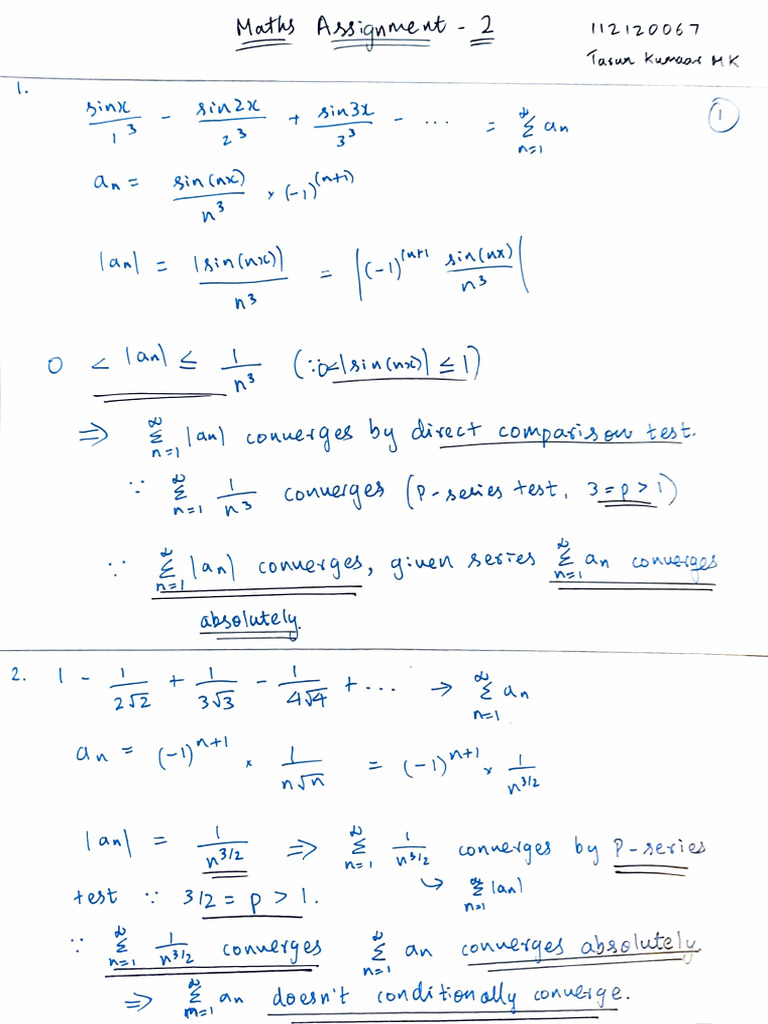 Maths Assignment - 2
112120067
Tarun Kumaar MK
1.
sinx/1^3 - sin2x/2^3 + sin3x/3^3 - ... = ∞Σn=1 an
1
an = sin(nx)/n^3 × (-1)^(n+1)
|an| = |sin(nx)|/n^3 = |(-1)^(n+1 sin(nx)/n^3|
0 < |an| ≤ 1/n^3 (∵0<|sin(nx)| ≤ 1)
⇒ ∞Σn=1 |an| converges by direct comparison test.
∵ ∞Σn=1 1/n^3 converges (P-series test, 3=p>1)
∵ ∞Σn=1 |an| converges, given series ∞Σn=1 an converges
absolutely.
2. 1 - 1/2√2 + 1/3√3 - 1/4√4 + ... → ∞Σn=1 an
an = (-1)^n+1 × 1/n√n = (-1)^n+1 × 1/n^3/2
|an| = 1/n^3/2 ⇒ ∞Σn=1 1/n^3/2 converges by P-series
test ∵ 3/2 = p > 1. ↳ ∞Σn=1 |an|
∵ ∞Σn=1 1/n^3/2 converges ∞Σn=1 an converges absolutely
⇒ ∞Σn=1 an doesn't conditionally converge.